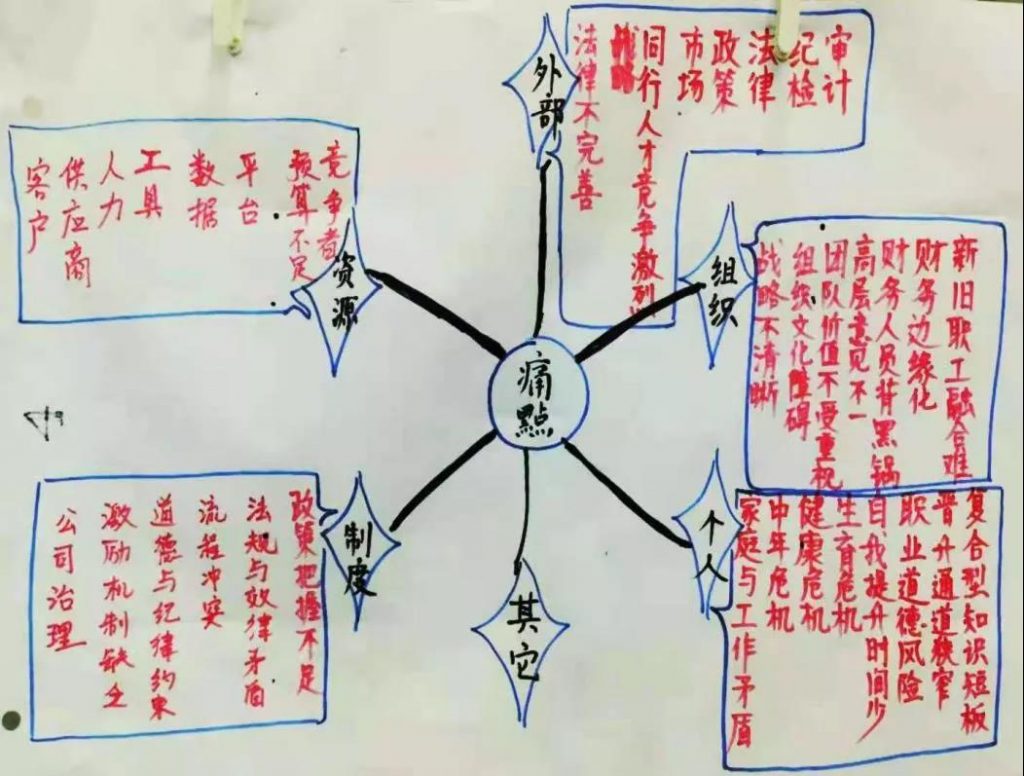 痛點
外部
审计
纪检
法律
政策
市场
同行人才竞争激烈
法律不完善
组织
新旧职工融合难
财务边缘化
财务人员背黑锅
高层意见不一
团队价值不受重视
组织文化障碍
战略不清晰
个人
复合型知识短板
晋升通道狭窄
职业道德风险
自我提升时间少
生育危机
健康危机
中年危机
家庭与工作矛盾
其它
制度
政策把握不足
法规与效律矛盾
流程冲突
道德与纪律约束
激励机制缺乏
公司治理
资源
竞争者
预算不足
平台
数据
工具
人力
供应商
客户